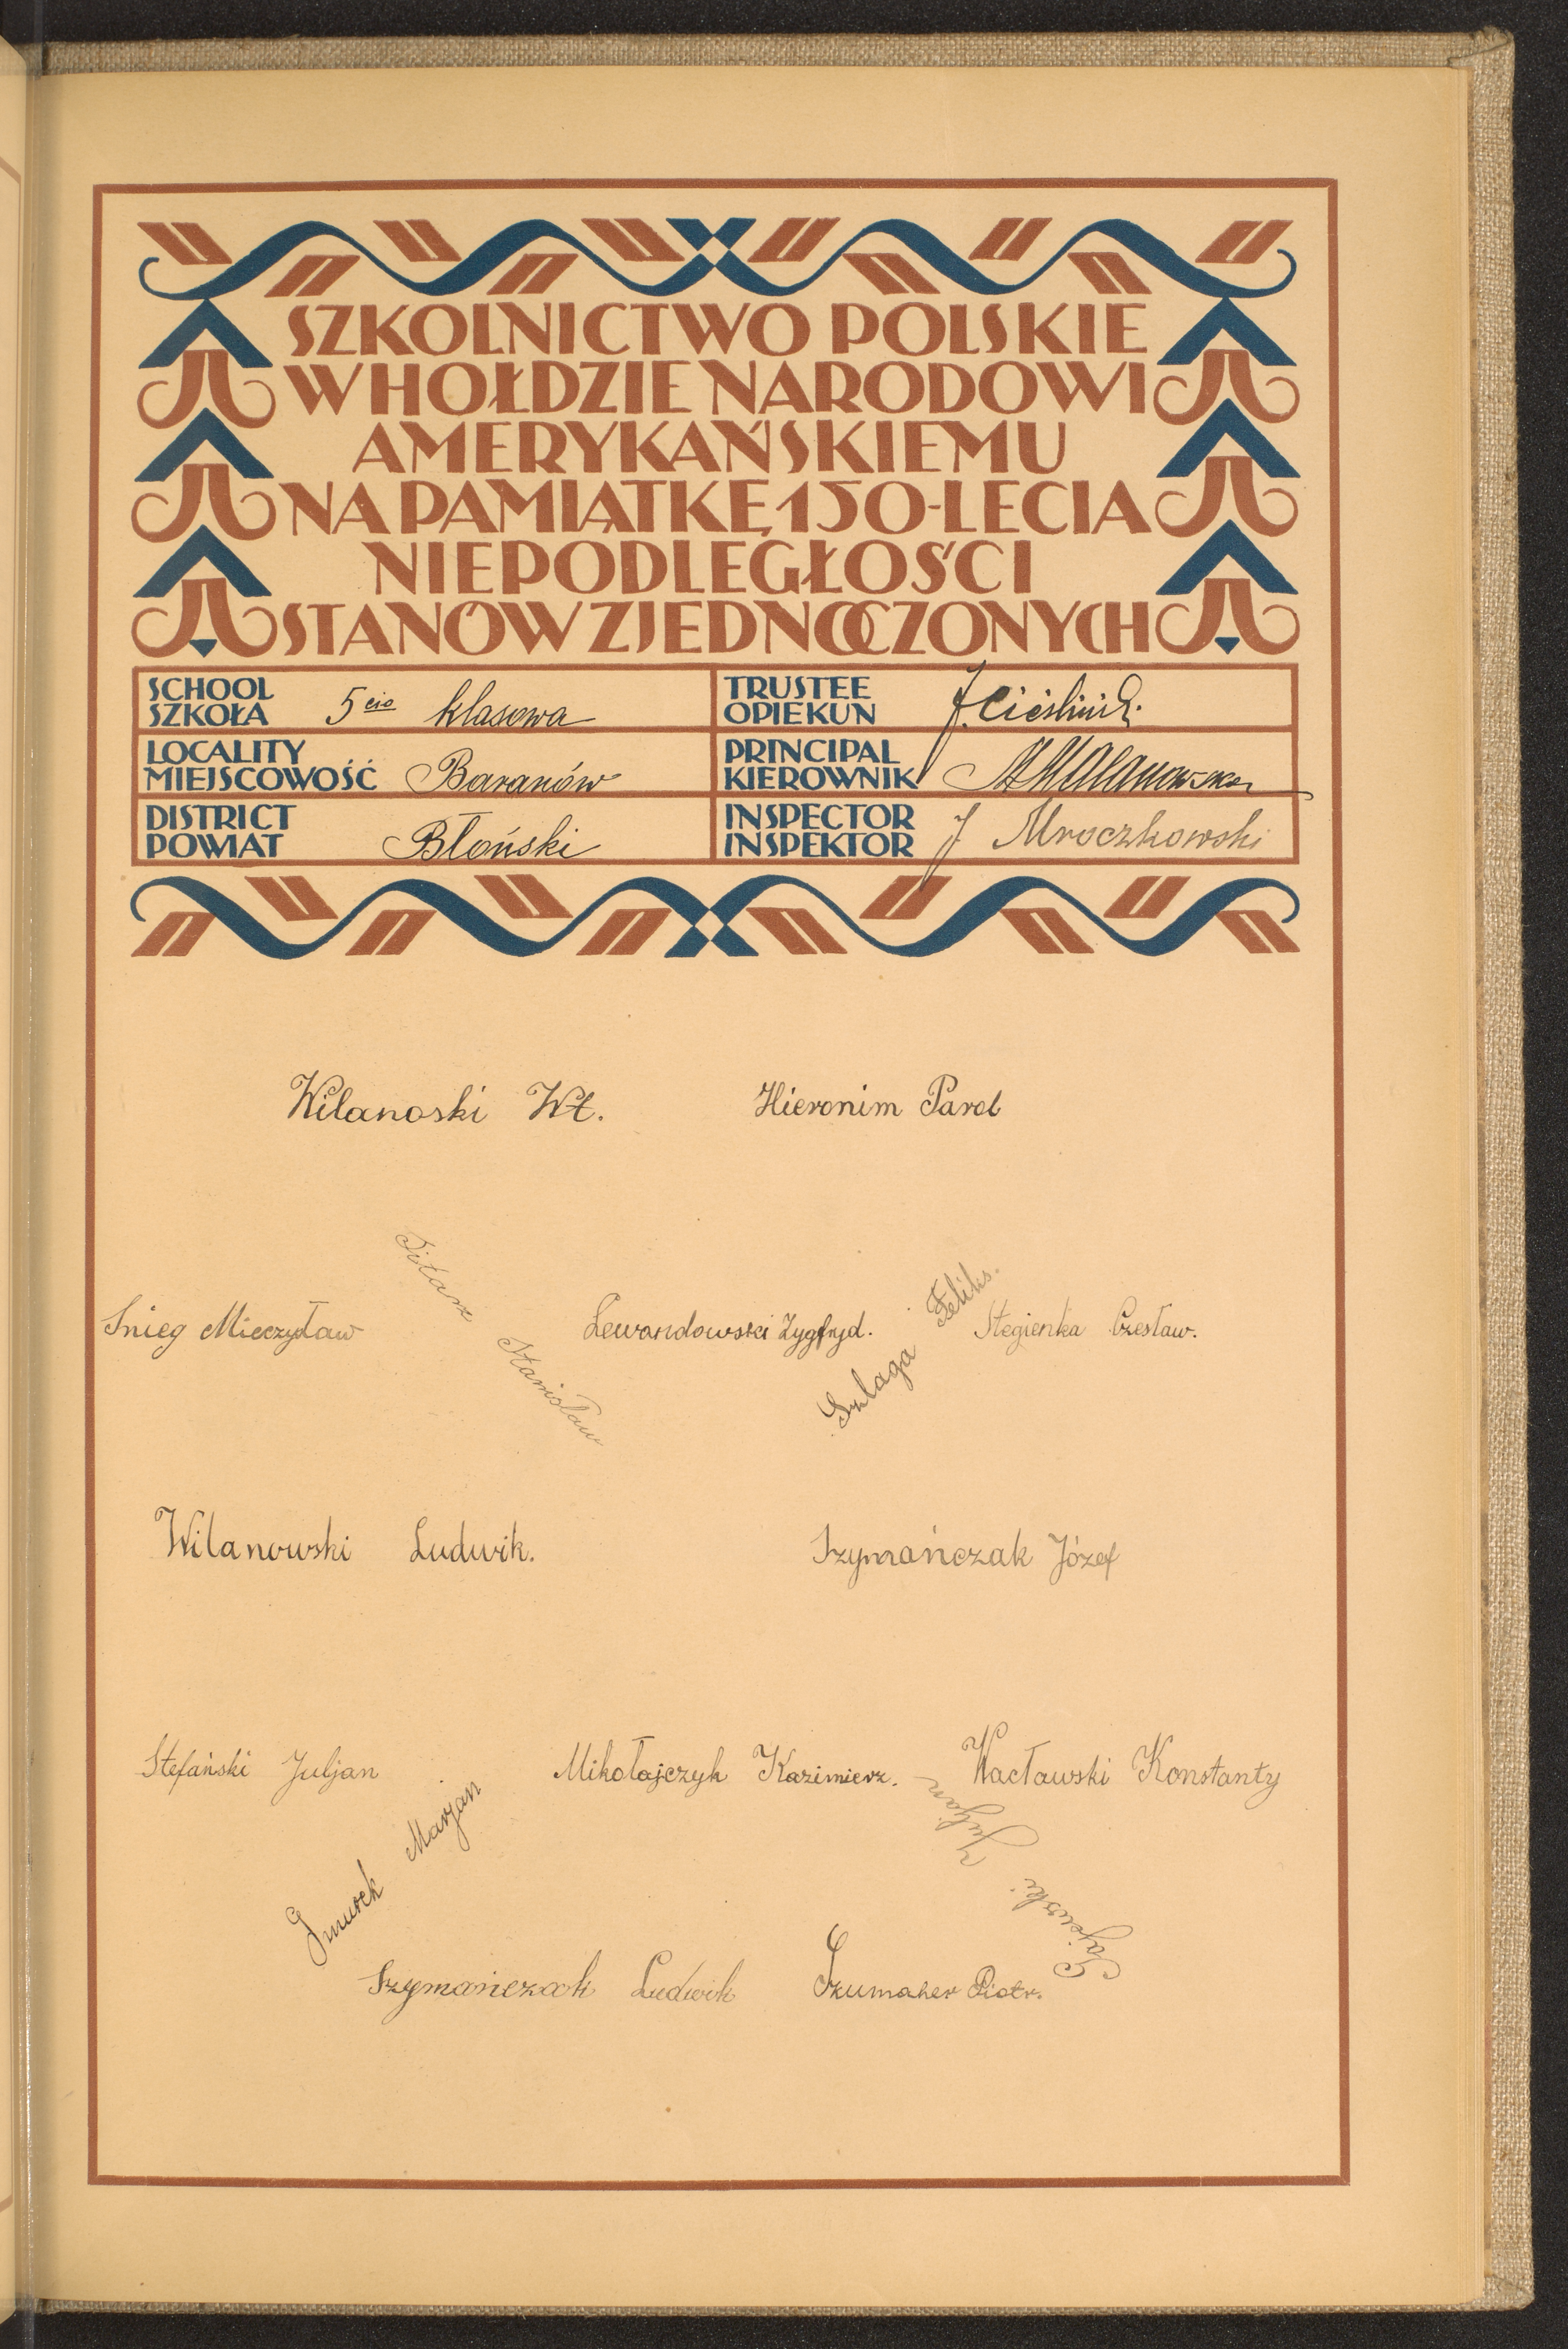 SZKOLNICTWO POLSKIE
W HOŁDZIE NARODOWI
AMERYKAŃSKIEMU
NA PAMIĄTKĘ 150-LECIA
NIEPODLEGŁOŚCI
STANÓW ZJEDNOCZONYCH
SCHOOL
SZKOŁA 5cio klasowa
TRUSTEE
OPIEKUN
LOCALITY
MIEJSCOWOŚĆ Baranów
PRINCIPAL
KIEROWNIK
DISTRICT
POWIAT Błoński
INSPECTOR
INSPEKTOR J Mroczkowski
Wilanoski Wł.
Hieronim Parol
Snieg Mieczysław
Stanisław
Lewandowski Zygfryd.
Szlaga Feliks.
Stegienka Czesław.
Wilanowski Ludwik.
Szymańczak Józef
Stefański Juljan
Mikołajczyk Kazimierz.
Wacławski Konstanty
Smurek Marjan
Gajewski Juljan
Szymańczak Ludwik
Szumaher Piotr.